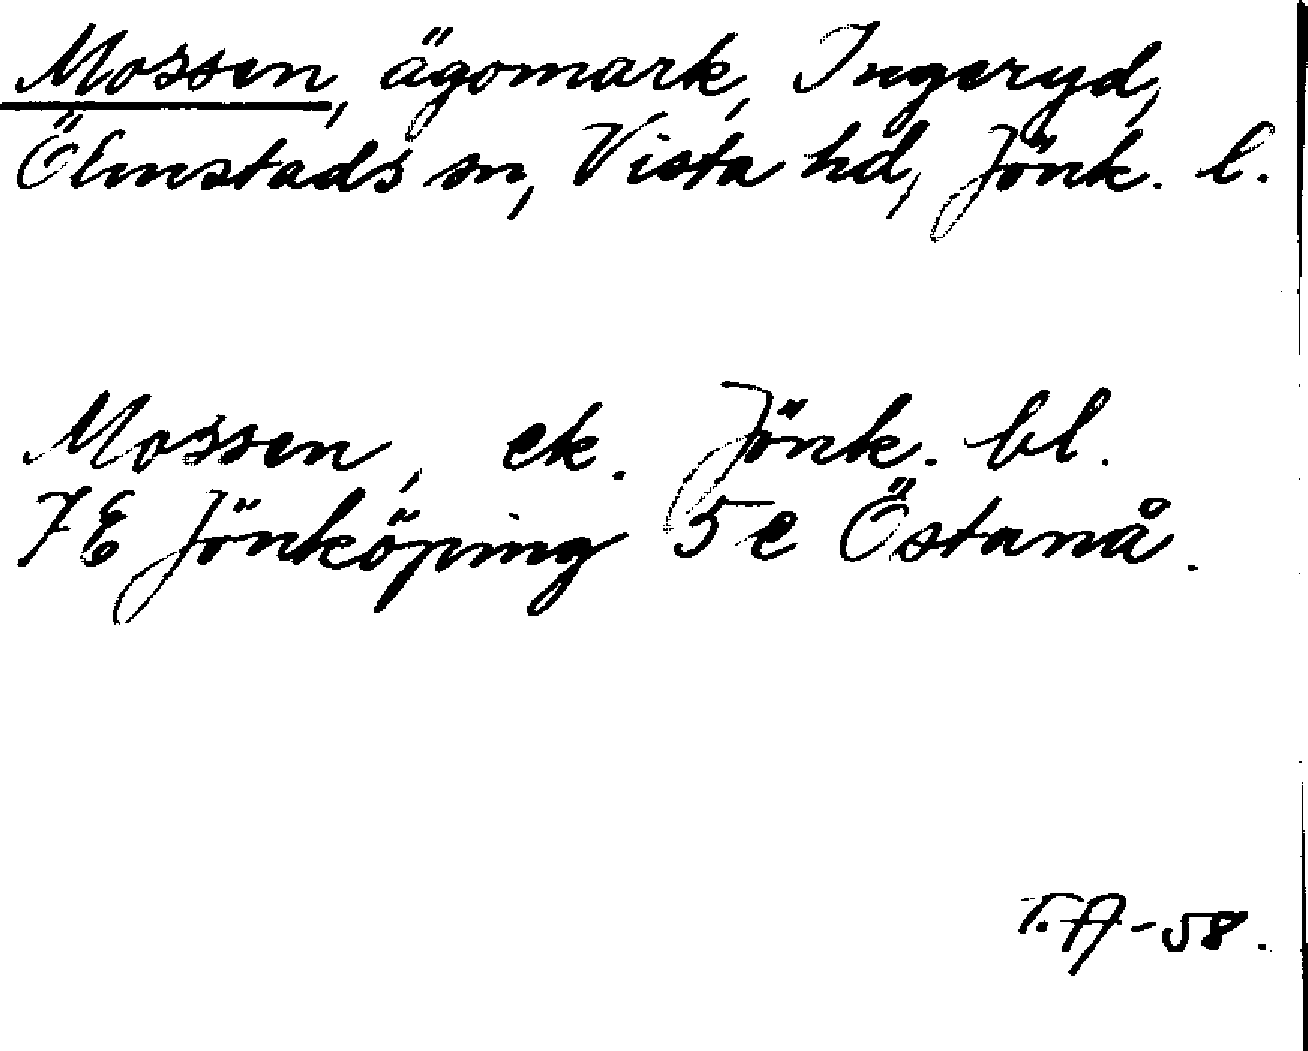 Mossen, ägomark, Ingeryd,
Ölmstads sn, Vista hd, Jönk. l.
Mossen, ek. Jönk. bl.
7E Jönköping 5e Östanå.
T.A-58.